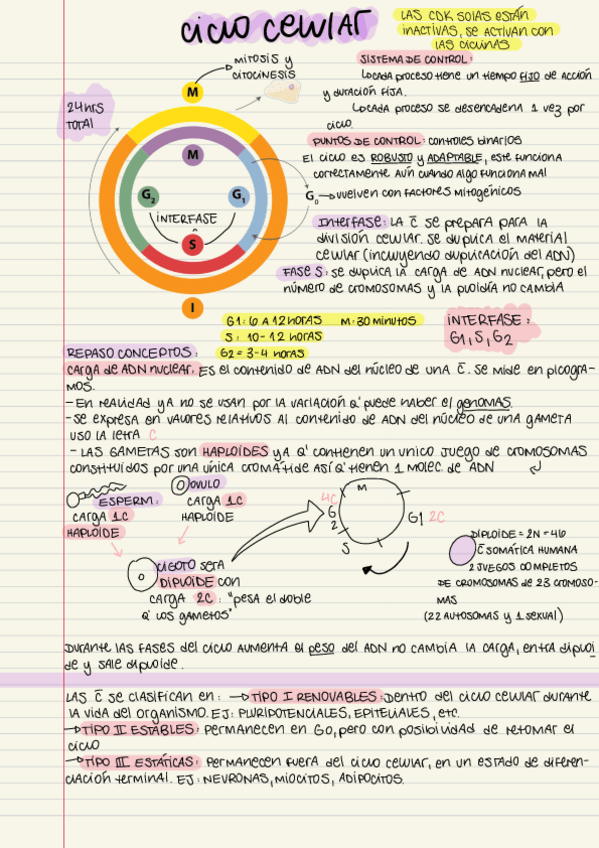 ciclo celular
LAS CDK SOLAS ESTÁN
INACTIVAS, SE ACTIVAN CON
LAS CICLINAS
MITOSIS Y
CITOCINESIS
24 HRS
TOTAL
M
M
G2
G1
INTERFASE
S
I
SISTEMA DE CONTROL:
↳ CADA PROCESO TIENE UN TIEMPO FIJO DE ACCIÓN
Y DURACIÓN FIJA.
↳ CADA PROCESO SE DESENCADENA 1 VEZ POR
CICLO.
PUNTOS DE CONTROL: CONTROLES BINARIOS
EL CICLO ES ROBUSTO Y ADAPTABLE, ESTE FUNCIONA
CORRECTAMENTE AUN CUANDO ALGO FUNCIONA MAL
G0 → VUELVEN CON FACTORES MITOGÉNICOS
INTERFASE: LA C̄ SE PREPARA PARA LA
DIVISIÓN CELULAR. SE DUPLICA EL MATERIAL
CELULAR (INCLUYENDO DUPLICACIÓN DEL ADN)
FASE S: SE DUPLICA LA CARGA DE ADN NUCLEAR, PERO EL
NÚMERO DE CROMOSOMAS Y LA PLOIDÍA NO CAMBIA
G1: 6 A 12 HORAS M: 30 MINUTOS
S: 10-12 HORAS
G2 = 3-4 HORAS
INTERFASE:
G1, S, G2
REPASO CONCEPTOS:
CARGA DE ADN NUCLEAR: ES EL CONTENIDO DE ADN DEL NÚCLEO DE UNA C̄. SE MIDE EN PICOGRA-
MOS.
- EN REALIDAD YA NO SE USAN POR LA VARIACIÓN Q' PUEDE HABER EL GENOMAS.
- SE EXPRESA EN VALORES RELATIVOS AL CONTENIDO DE ADN DEL NÚCLEO DE UNA GAMETA
USO LA LETRA C
- LAS GAMETAS SON HAPLOIDES YA Q' CONTIENEN UN UNICO JUEGO DE CROMOSOMAS
CONSTITUIDOS POR UNA ÚNICA CROMÁTIDE ASÍ Q' TIENEN 1 MOLEC. DE ADN
ESPERM:
CARGA 1C
HAPLOIDE
OVULO
CARGA 1C
HAPLOIDE
CIGOTO SERA
DIPLOIDE CON
CARGA 2C: "PESA EL DOBLE
Q' LOS GAMETOS"
M
4C
G
2
S
G1 2C
DIPLOIDE = 2N = 46
C̄ SOMÁTICA HUMANA
2 JUEGOS COMPLETOS
DE CROMOSOMAS DE 23 CROMOSO-
MAS
(22 AUTOSOMAS Y 1 SEXUAL)
DURANTE LAS FASES DEL CICLO AUMENTA EL PESO DEL ADN NO CAMBIA LA CARGA, ENTRA DIPLOI
DE Y SALE DIPLOIDE.
LAS C̄ SE CLASIFICAN EN: → TIPO I RENOVABLES: DENTRO DEL CICLO CELULAR DURANTE
LA VIDA DEL ORGANISMO. EJ: PLURIPOTENCIALES, EPITELIALES, etc.
→ TIPO II ESTABLES: PERMANECEN EN G0, PERO CON POSIBILIDAD DE RETOMAR EL
CICLO
→ TIPO III ESTÁTICAS: PERMANECEN FUERA DEL CICLO CELULAR, EN UN ESTADO DE DIFEREN-
CIACIÓN TERMINAL. EJ: NEURONAS, MIOCITOS, ADIPOCITOS.